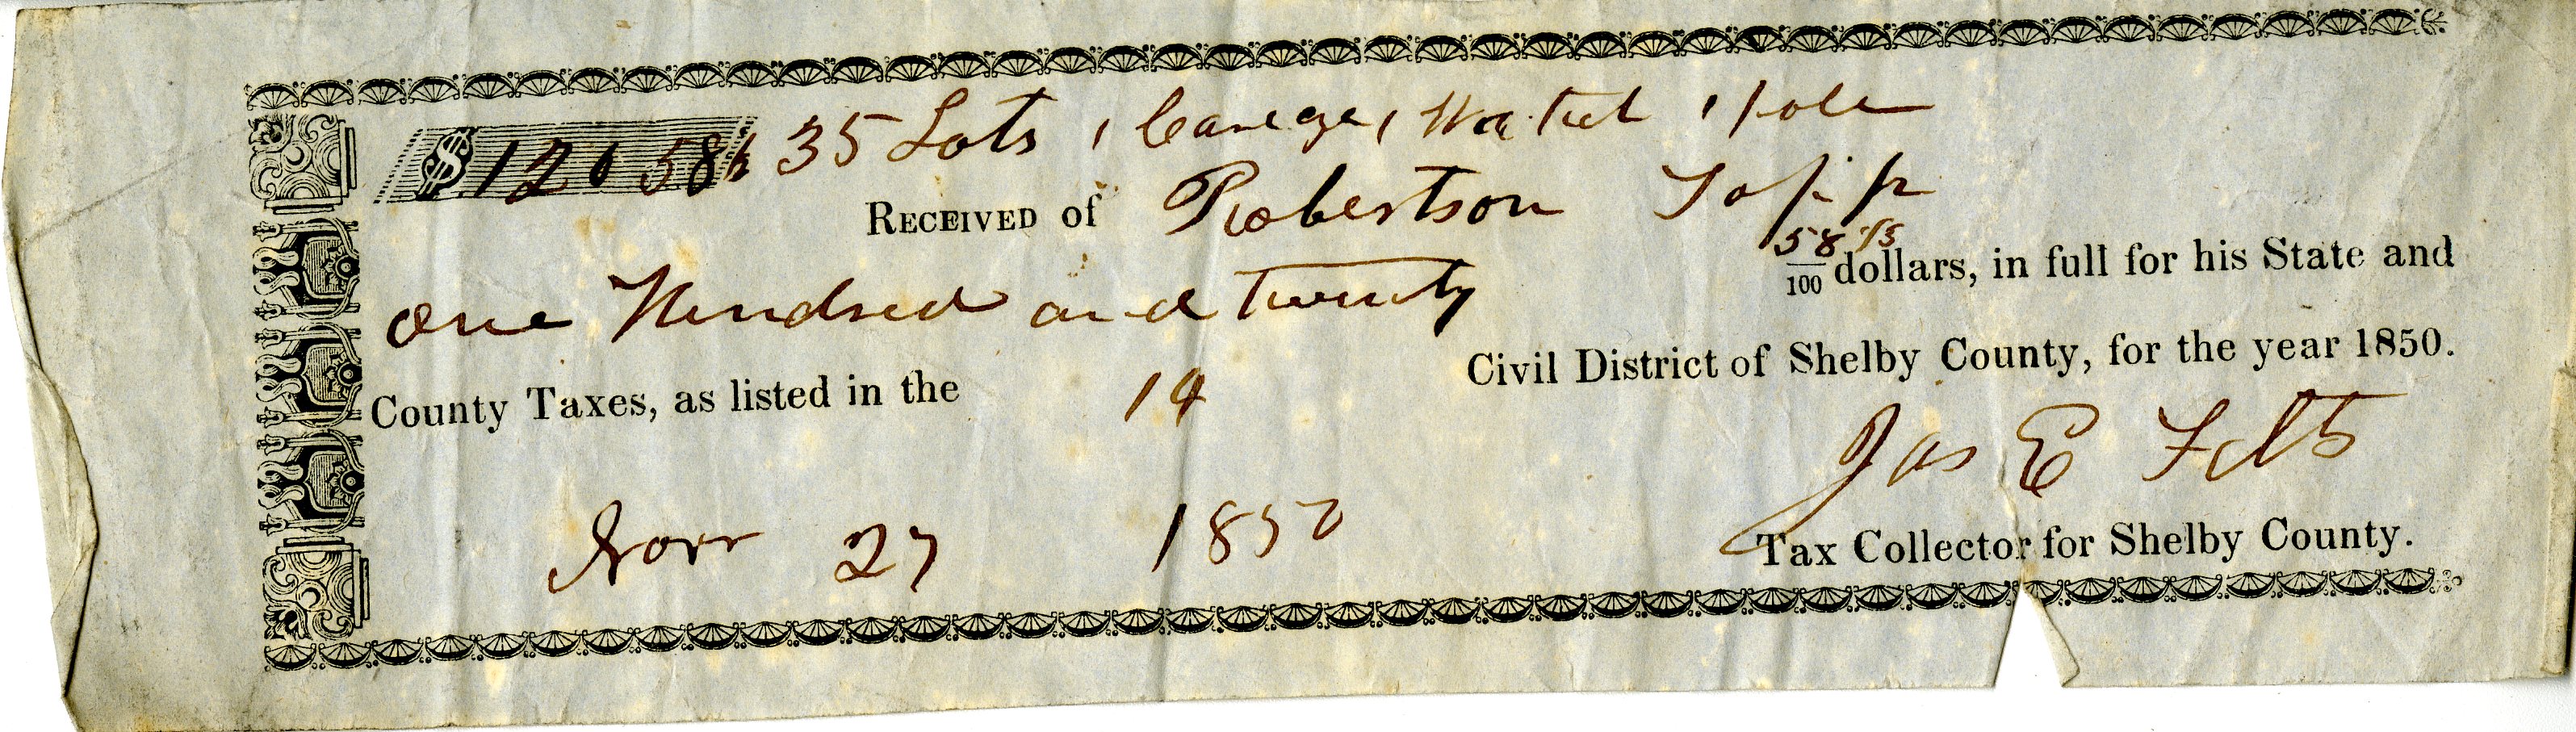 $120 58 1/2 35 Lots, 1 Carege, 1 Watch 1 Pole
RECEIVED of Robertson Topp
One Hundred and Twenty 58 1/3/100 dollars, in full for his State and
County Taxes, as listed in the 14 Civil District of Shelby County, for the year 1850.
Jas E Felts
Novr 27 1850 Tax Collector for Shelby County.